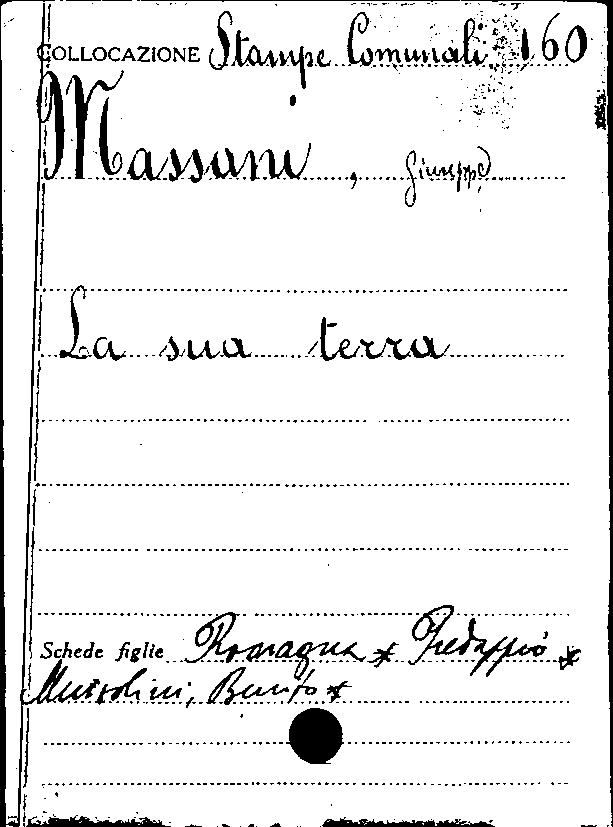 COLLOCAZIONE Stampe Comunali 160
Massani, Giuseppe
La sua terra
Schede figlie Romagna * Predappio *
Mussolini, Benito *